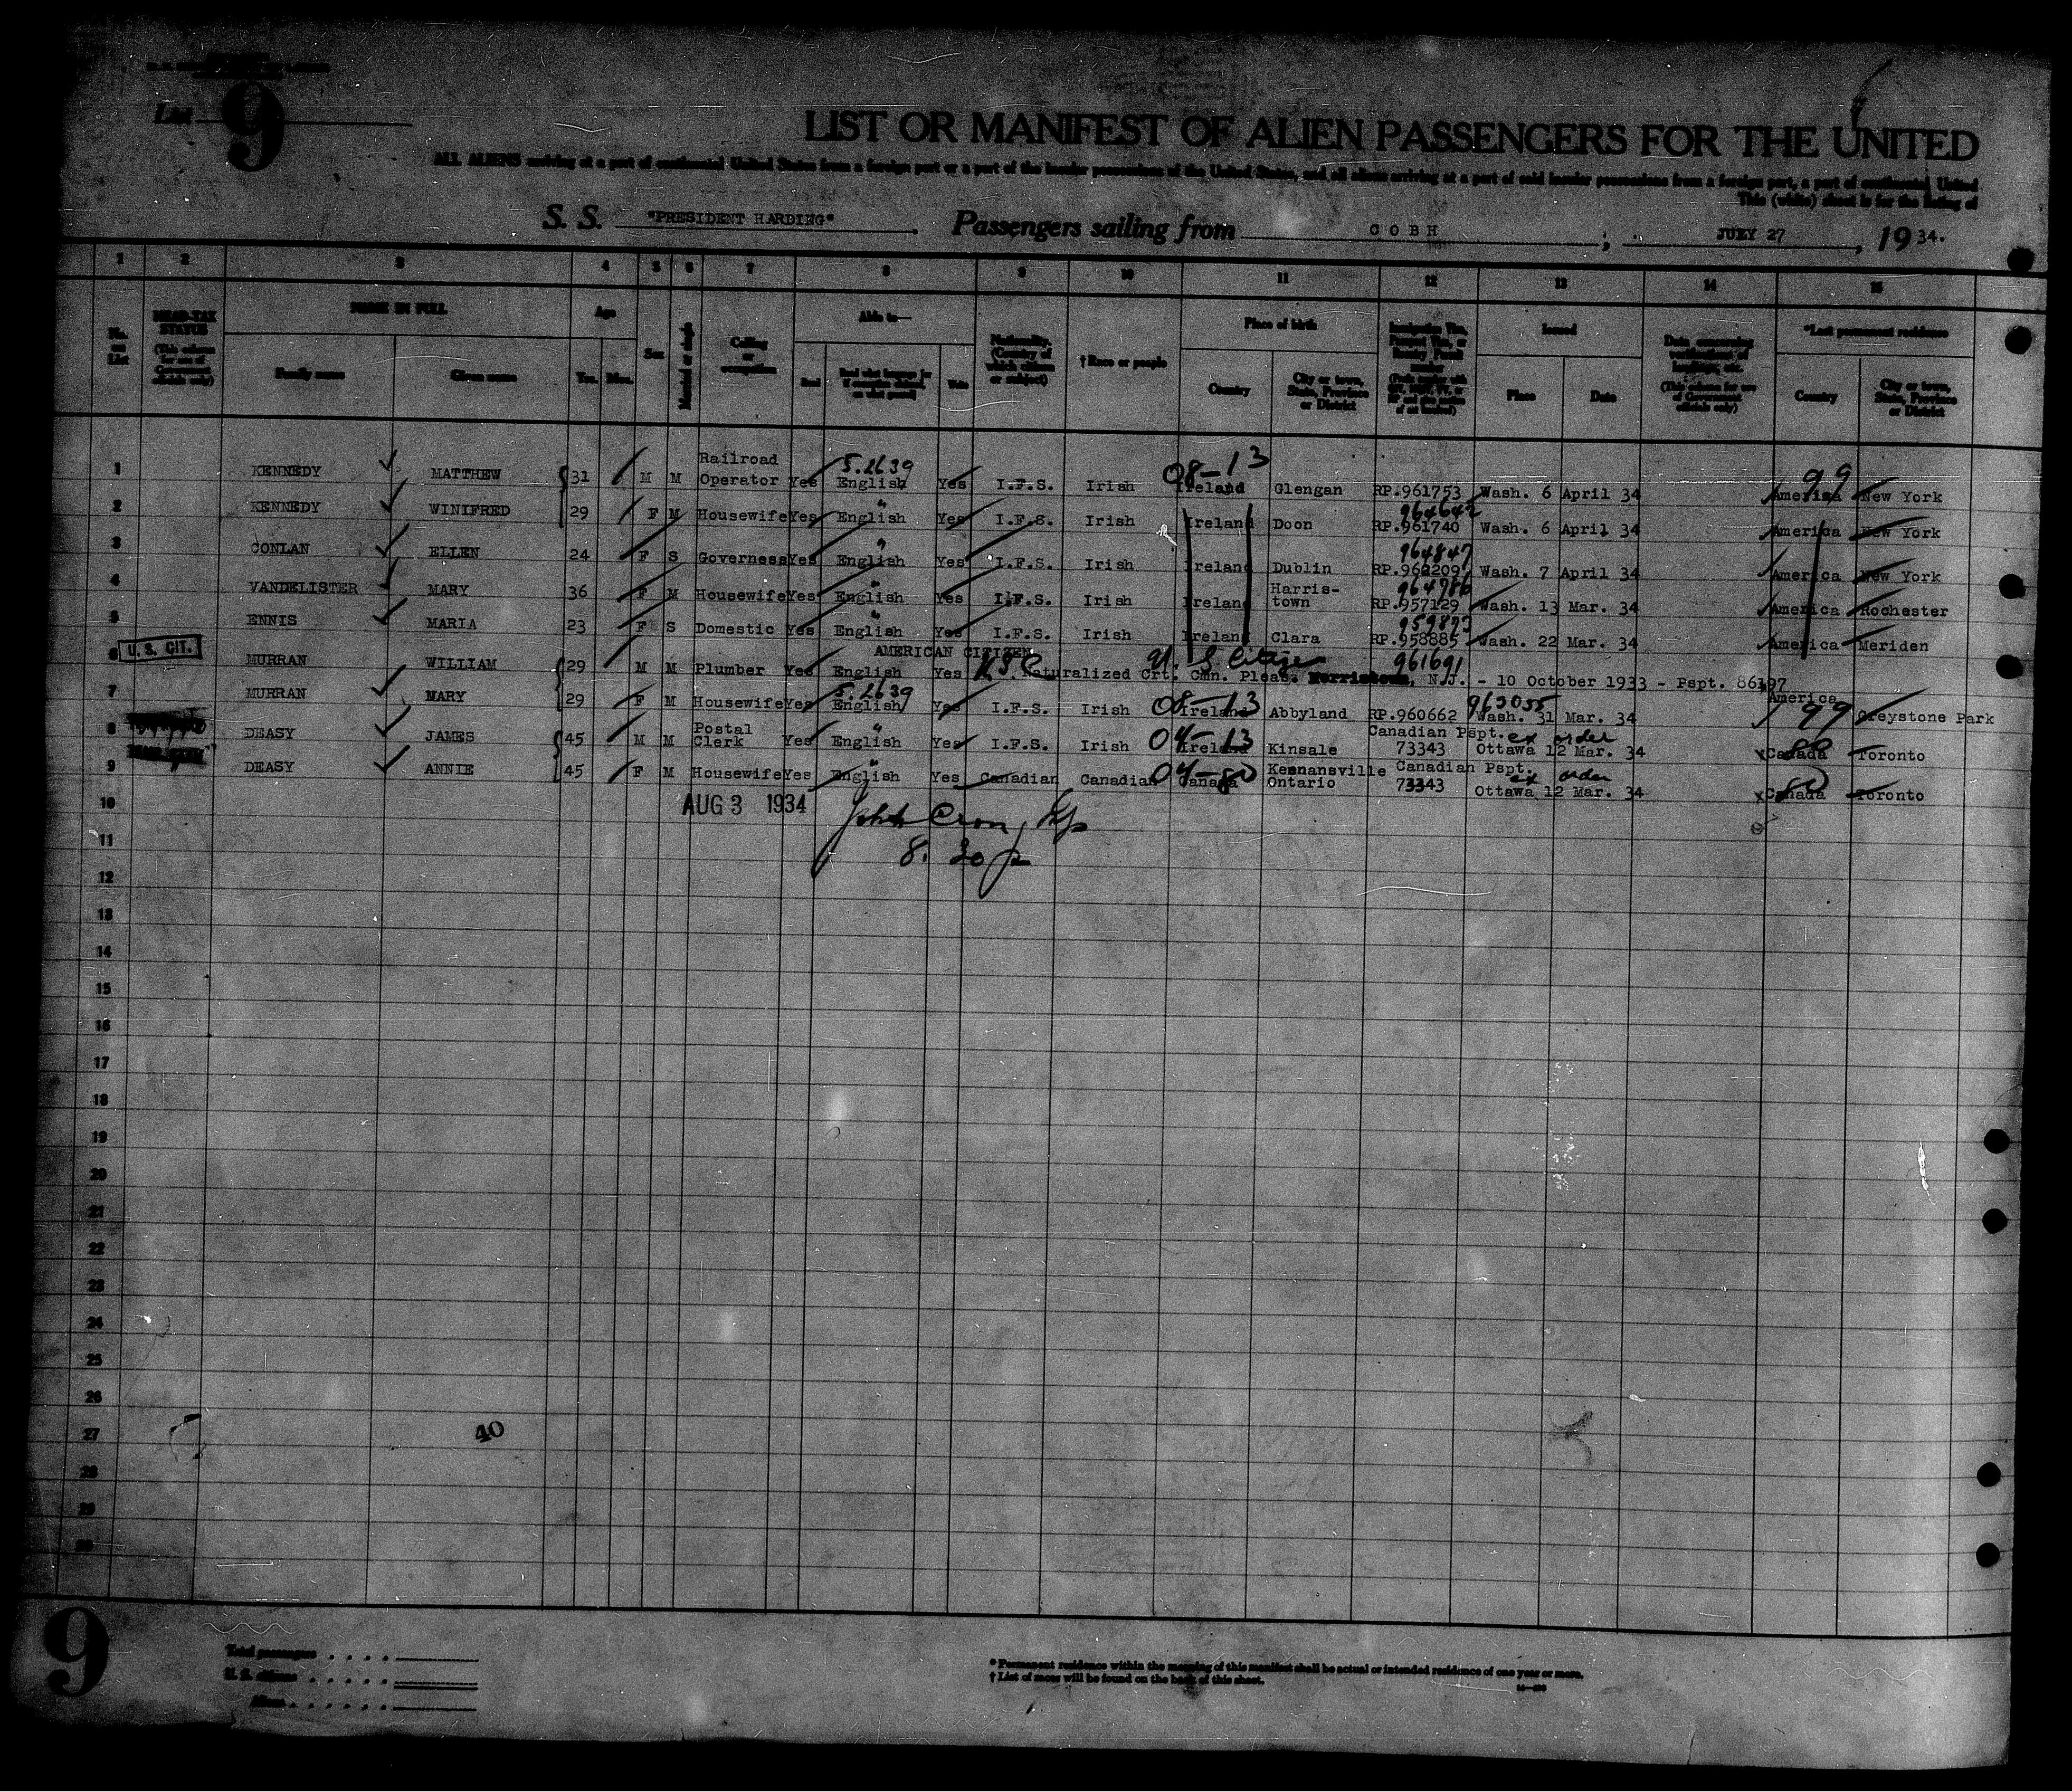 List 9
LIST OR MANIFEST OF ALIEN PASSENGERS FOR THE UNITED
ALL ALIENS arriving at a port of continental United States from a foreign port or a port of the insular possessions of the United States, and all aliens arriving at a port of said insular possessions from a foreign port, a port of continental United
This (white) sheet is for the listing of
S. S. "PRESIDENT HARDING" Passengers sailing from COBH ; JULY 27, 1934.
1 2 3 4 5 6 7 8 9 10 11 12 13 14 15
No. on List
HEAD-TAX STATUS (This column for use of Government officials only)
NAME IN FULL
Family name Given name
Age
Yrs. Mos.
Sex
Married or single
Calling or occupation
Able to—
Read Read what language Write
Nationality. (Country of which citizen or subject)
†Race or people
Place of birth
Country City or town, State, Province or District
Issued
Place Date
(This column for use of Government officials only)
*Last permanent residence
Country City or town, State, Province or District
1 KENNEDY MATTHEW 31 M M Railroad Operator Yes English Yes I.F.S. Irish Ireland Glengan RP.961753 Wash. 6 April 34 America New York
5.2639 08-13 99
2 KENNEDY WINIFRED 29 F M Housewife Yes English Yes I.F.S. Irish Ireland Doon RP.961740 Wash. 6 April 34 America New York
964642
3 CONLAN ELLEN 24 F S Governess Yes English Yes I.F.S. Irish Ireland Dublin RP.962209 Wash. 7 April 34 America New York
964847
4 VANDELISTER MARY 36 F M Housewife Yes English Yes I.F.S. Irish Ireland Harris-town RP.957129 Wash. 13 Mar. 34 America Rochester
964786
5 ENNIS MARIA 23 F S Domestic Yes English Yes I.F.S. Irish Ireland Clara RP.958885 Wash. 22 Mar. 34 America Meriden
U.S. CIT. AMERICAN CITIZEN U. S. Citizen 961691
6 MURRAN WILLIAM 29 M M Plumber Yes English Yes Naturalized Crt. Cmn. Pleas. Morristown, N.J. - 10 October 1933 - Pspt. 86197
7 MURRAN MARY 29 F M Housewife Yes English Yes I.F.S. Irish Ireland Abbyland RP.960662 Wash. 31 Mar. 34 America Greystone Park
5.2639 08-13 963055 99
8 DEASY JAMES 45 M M Postal Clerk Yes English Yes I.F.S. Irish Ireland Kinsale Canadian Pspt. 73343 Ottawa 12 Mar. 34 Canada Toronto
04-13 ex order
9 DEASY ANNIE 45 F M Housewife Yes English Yes Canadian Canadian Canada Kesnansville Ontario Canadian Pspt. 73343 Ottawa 12 Mar. 34 Canada Toronto
04-80 ex order 80
10 AUG 3 1934
11 8.30 p
12
13
14
15
16
17
18
19
20
21
22
23
24
25
26
27
40
28
29
30
9
Total passengers
U. S. citizens
Aliens
* Permanent residence within the meaning of this manifest shall be actual or intended residence of one year or more.
† List of races will be found on the back of this sheet.